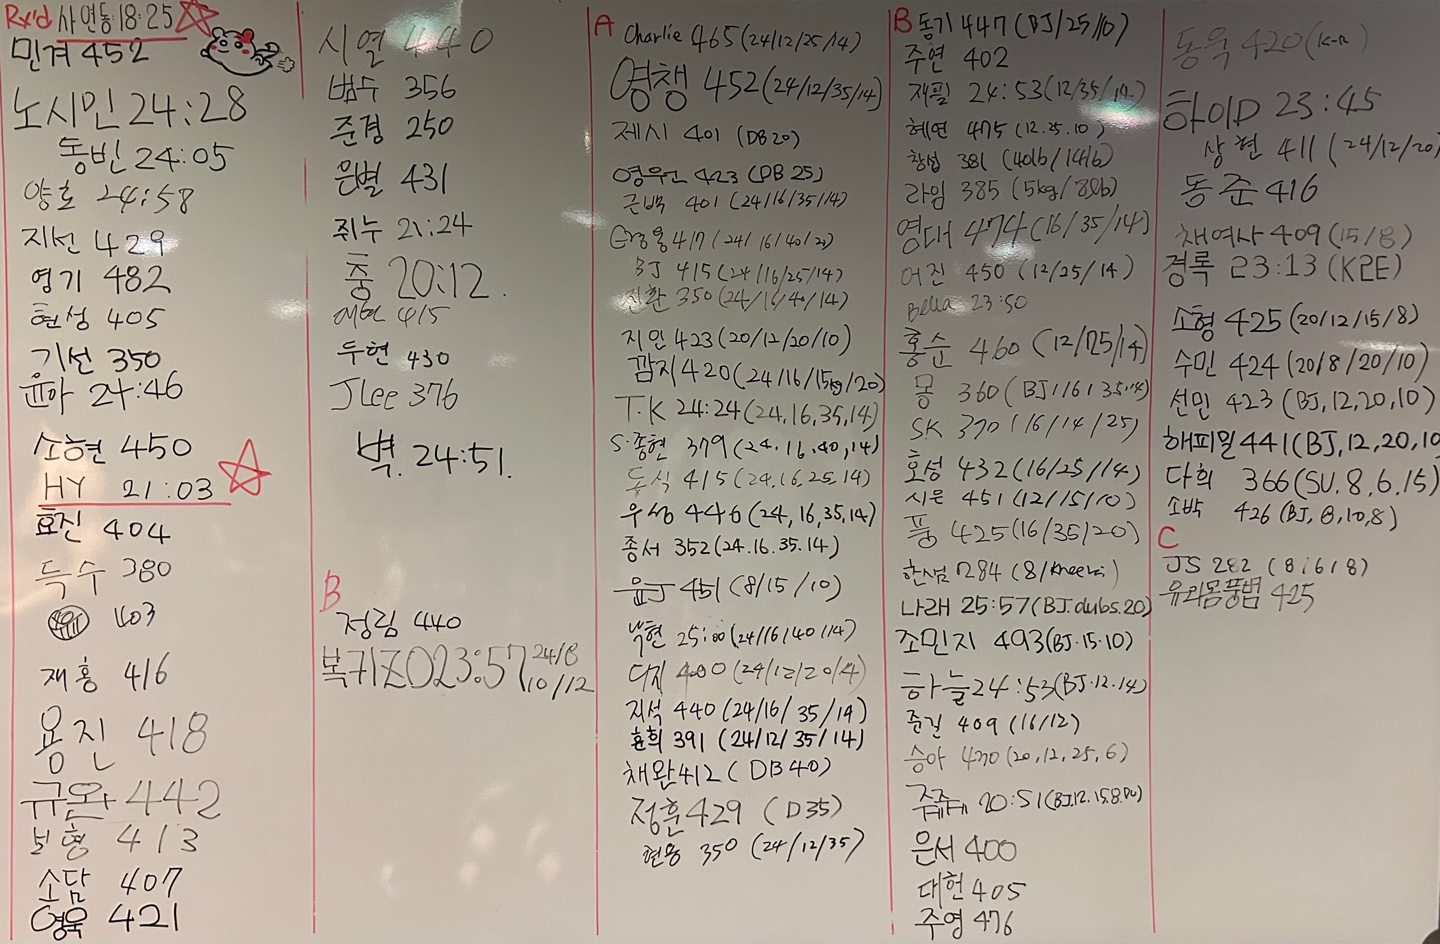 Rx'd 사연동 18:25
민겨 452
노시민 24:28
동빈 24:05
양호 24:58
지선 429
영기 482
현성 405
기선 350
윤아 24:46
소현 450
HY 21:03
효진 404
득수 380
403
재홍 416
용진 418
규완 442
보형 413
소담 407
영욱 421
시열 440
범수 356
준경 250
은별 431
쥐누 21:24
충 20:12.
415
두현 430
J Lee 376
벽. 24:51.
B
정림 440
복귀ZO 23:57 24/8
10/12
A Charlie 465 (24/12/25/14)
영챙 452 (24/12/35/14)
제시 401 (DB 20)
영우민 423 (DB 25)
근백 401 (24/16/35/14)
417 (24/16/40/20)
BJ 415 (24/16/25/14)
진환 350 (24/16/40/14)
지민 423 (20/12/20/10)
깜지 420 (24/16/15kg/20)
T.K 24:24 (24.16,35,14)
S.종현 379 (24.16.40,14)
동식 415 (24.16.25.14)
우성 446 (24,16,35,14)
종서 352 (24.16.35.14)
윤J 451 (8/15/10)
25:00 (24/16/40/14)
디지 400 (24/12/20/4)
지석 440 (24/16/35/14)
효희 391 (24/12/35/14)
채완 412 (DB40)
정훈 429 (D35)
현용 350 (24/12/35)
B 동기 447 (BJ/25/10)
주연 402
재필 24:53 (12/35/14)
혜연 475 (12.25.10)
창섭 381 (40lb/14lb)
라임 385 (5kg/8lb)
영대 474 (16/35/14)
어진 450 (12/25/14)
Bella 23:50
홍순 460 (12/25/14)
몽 360 (BJ/16/35.14)
SK 370 (16/14/25)
호성 432 (16/25/14)
시은 451 (12/15/10)
풍 425 (16/35/20)
한섬 284
나래 25:57 (BJ.dubs.20)
조민지 493 (BJ.15.10)
하늘 24:53 (BJ.12.14)
준길 409 (16/12)
승아 470 (20,12,25,6)
20:51
은서 400
대헌 405
주영 476
동욱 420
하이D 23:45
상현 411 (24/12/20)
동준 416
채여사 409 (15/8)
경록 23:13 (K2E)
소형 425 (20/12/15/8)
수민 424 (20/8/20/10)
선민 423 (BJ,12,20,10)
해피밀 441 (BJ,12,20,10
다희 366 (SU.8,6.15)
소박 426 (BJ,8,10,8)
C
JS 282 (8/6/8)
425